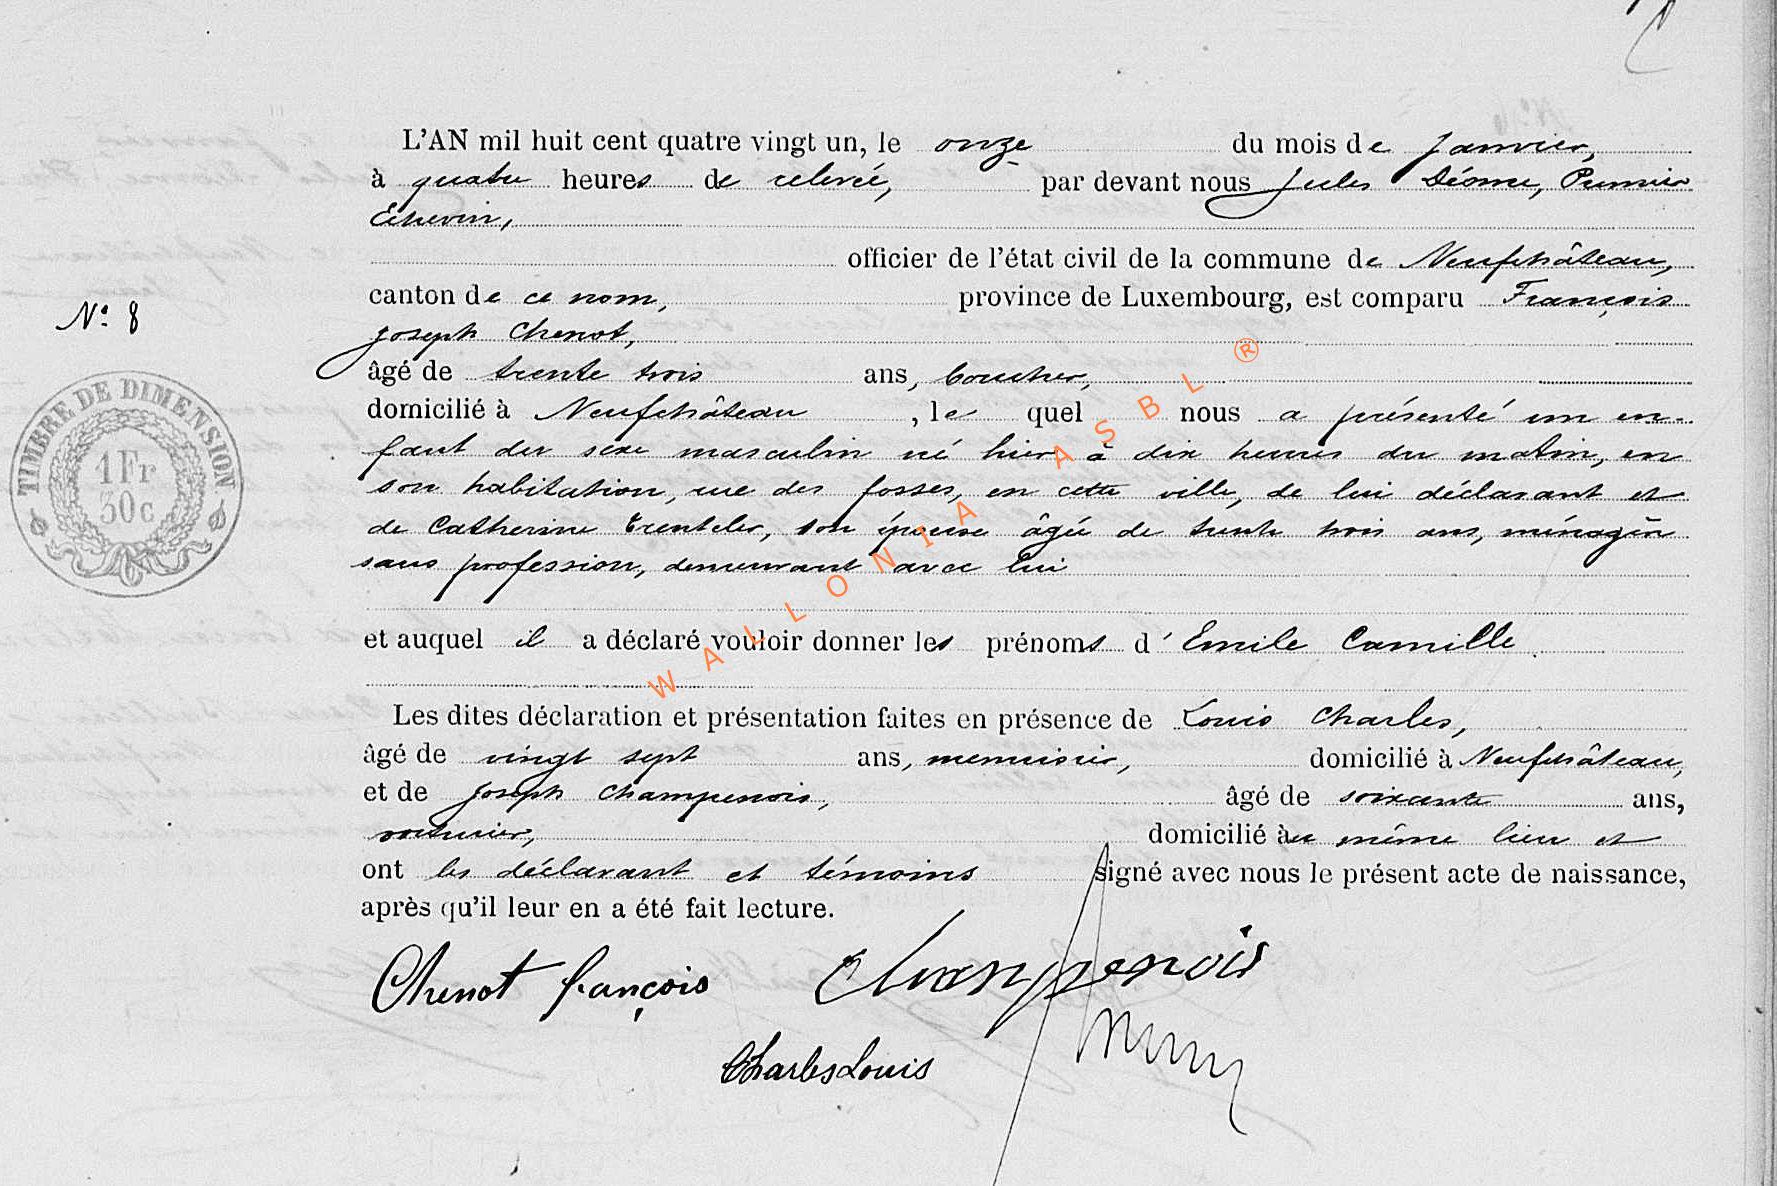 L'AN mil huit cent quatre vingt un, le onze du mois de Janvier,
à quatre heures de relevée, par devant nous Jules Déome, Premier
Echevin,
officier de l'état civil de la commune de Neufchâteau,
canton de ce nom, province de Luxembourg, est comparu François
Joseph Chenot,
N° 8
âgé de trente trois ans, boucher,
domicilié à Neufchâteau, le quel nous a présenté un en-
fant du sexe masculin né hier à dix heures du matin, en
son habitation, rue des fossés, en cette ville, de lui déclarant et
de Catherine Trenteler, son épouse âgée de trente trois ans, ménagère
sans profession, demeurant avec lui
TIMBRE DE DIMENSION
1 Fr
30c
et auquel il a déclaré vouloir donner les prénoms d'Emile Camille
Les dites déclaration et présentation faites en présence de Louis Charles,
âgé de vingt sept ans, menuisier, domicilié à Neufchâteau,
et de Joseph Champenois, âgé de soixante ans,
voiturier, domicilié au même lieu et
ont les déclarant et témoins signé avec nous le présent acte de naissance,
après qu'il leur en a été fait lecture.
Chenot françois Champenois
Charles Louis
WALLONIA ASBL ®